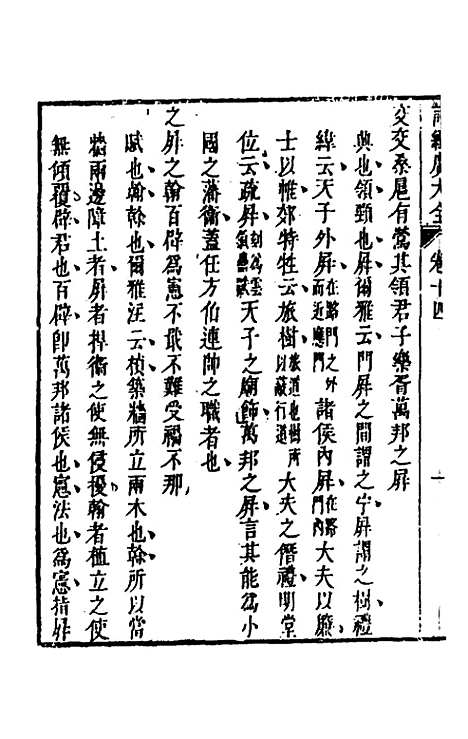 詩經廣大全 卷十四
交交桑扈有鶯其領君子樂胥萬邦之屏
興也領頸也屏爾雅云門屏之間謂之宁屏謂之樹禮
緯云天子外屏在路門之外而近應門諸侯內屏在路門內大夫以簾
士以帷郊特牲云旅樹旅道也樹所以蔽行道大夫之僭禮明堂
位云疏屏刻爲雲氣蟲獸天子之廟飾萬邦之屏言其能爲小
國之藩衛蓋任方伯連帥之職者也
之屏之翰百辟爲憲不戢不難受福不那
賦也翰榦也爾雅注云楨築牆所立兩木也榦所以當
牆兩邊障土者屏者捍衛之使無侵擾翰者植立之使
無傾覆辟君也百辟卽萬邦諸侯也憲法也爲憲指屏